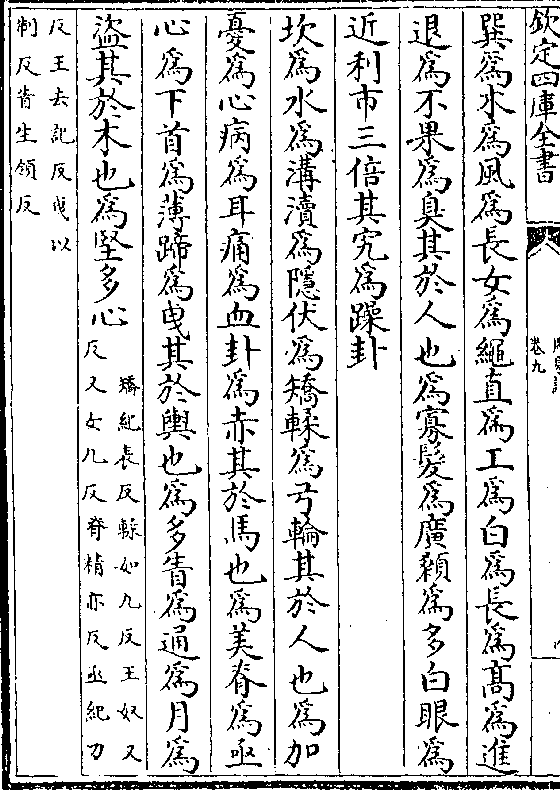 欽定四庫全書
卷九
巽爲木爲風爲長女爲繩直爲工爲白爲長爲髙爲進
退爲不果爲臭其於人也爲寡髮爲廣顙爲多白眼爲
近利市三倍其究爲躁卦
坎爲水爲溝瀆爲隱伏爲矯輮爲弓輪其於人也爲加
憂爲心病爲耳痛爲血卦爲赤其於馬也爲美脊爲亟
心爲下首爲薄蹄爲曳其於輿也爲多眚爲通爲月爲
盜其於木也爲堅多心
矯紀表反輮如九反王奴又
反又女九反脊精亦反亟紀力
反王去記反曳以
制反眚生領反